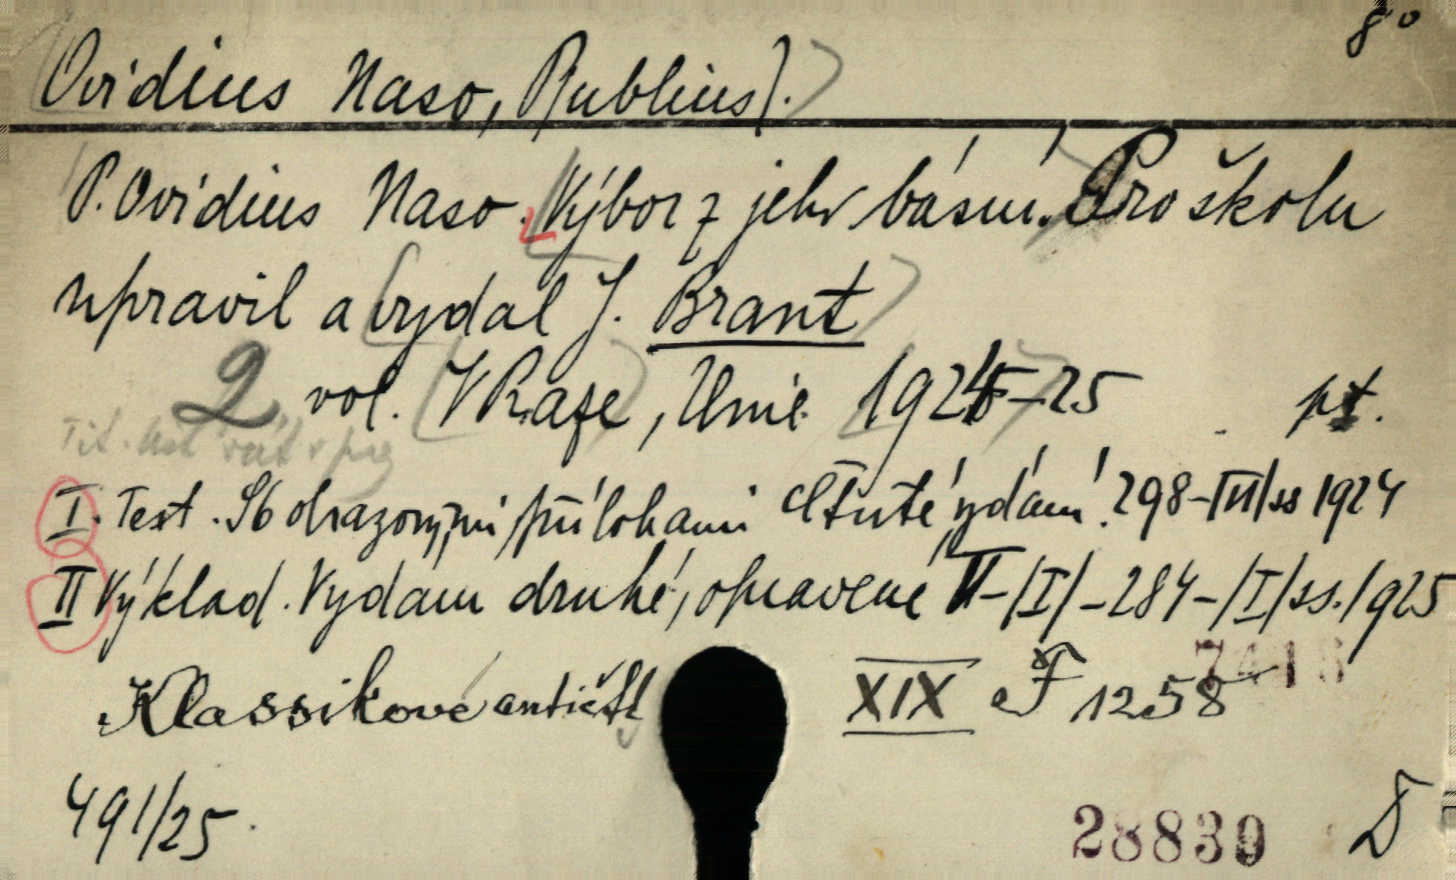 8°
(Ovidius Naso, Publius).
P. Ovidius Naso. Výbor z jeho básní. Pro školu
upravil a vydal J. Brant
2 vol. V Praze, Unie 1924-25 pt.
I. Text. S 6 obrazovými přílohami Čtvrté vydání. 298-III/ss 1924
II Výklad. Vydání druhé, opravené II-/I/-284-/I/ss. 1925
Klassikové antičtí XIX F 1258
491/25.
28839